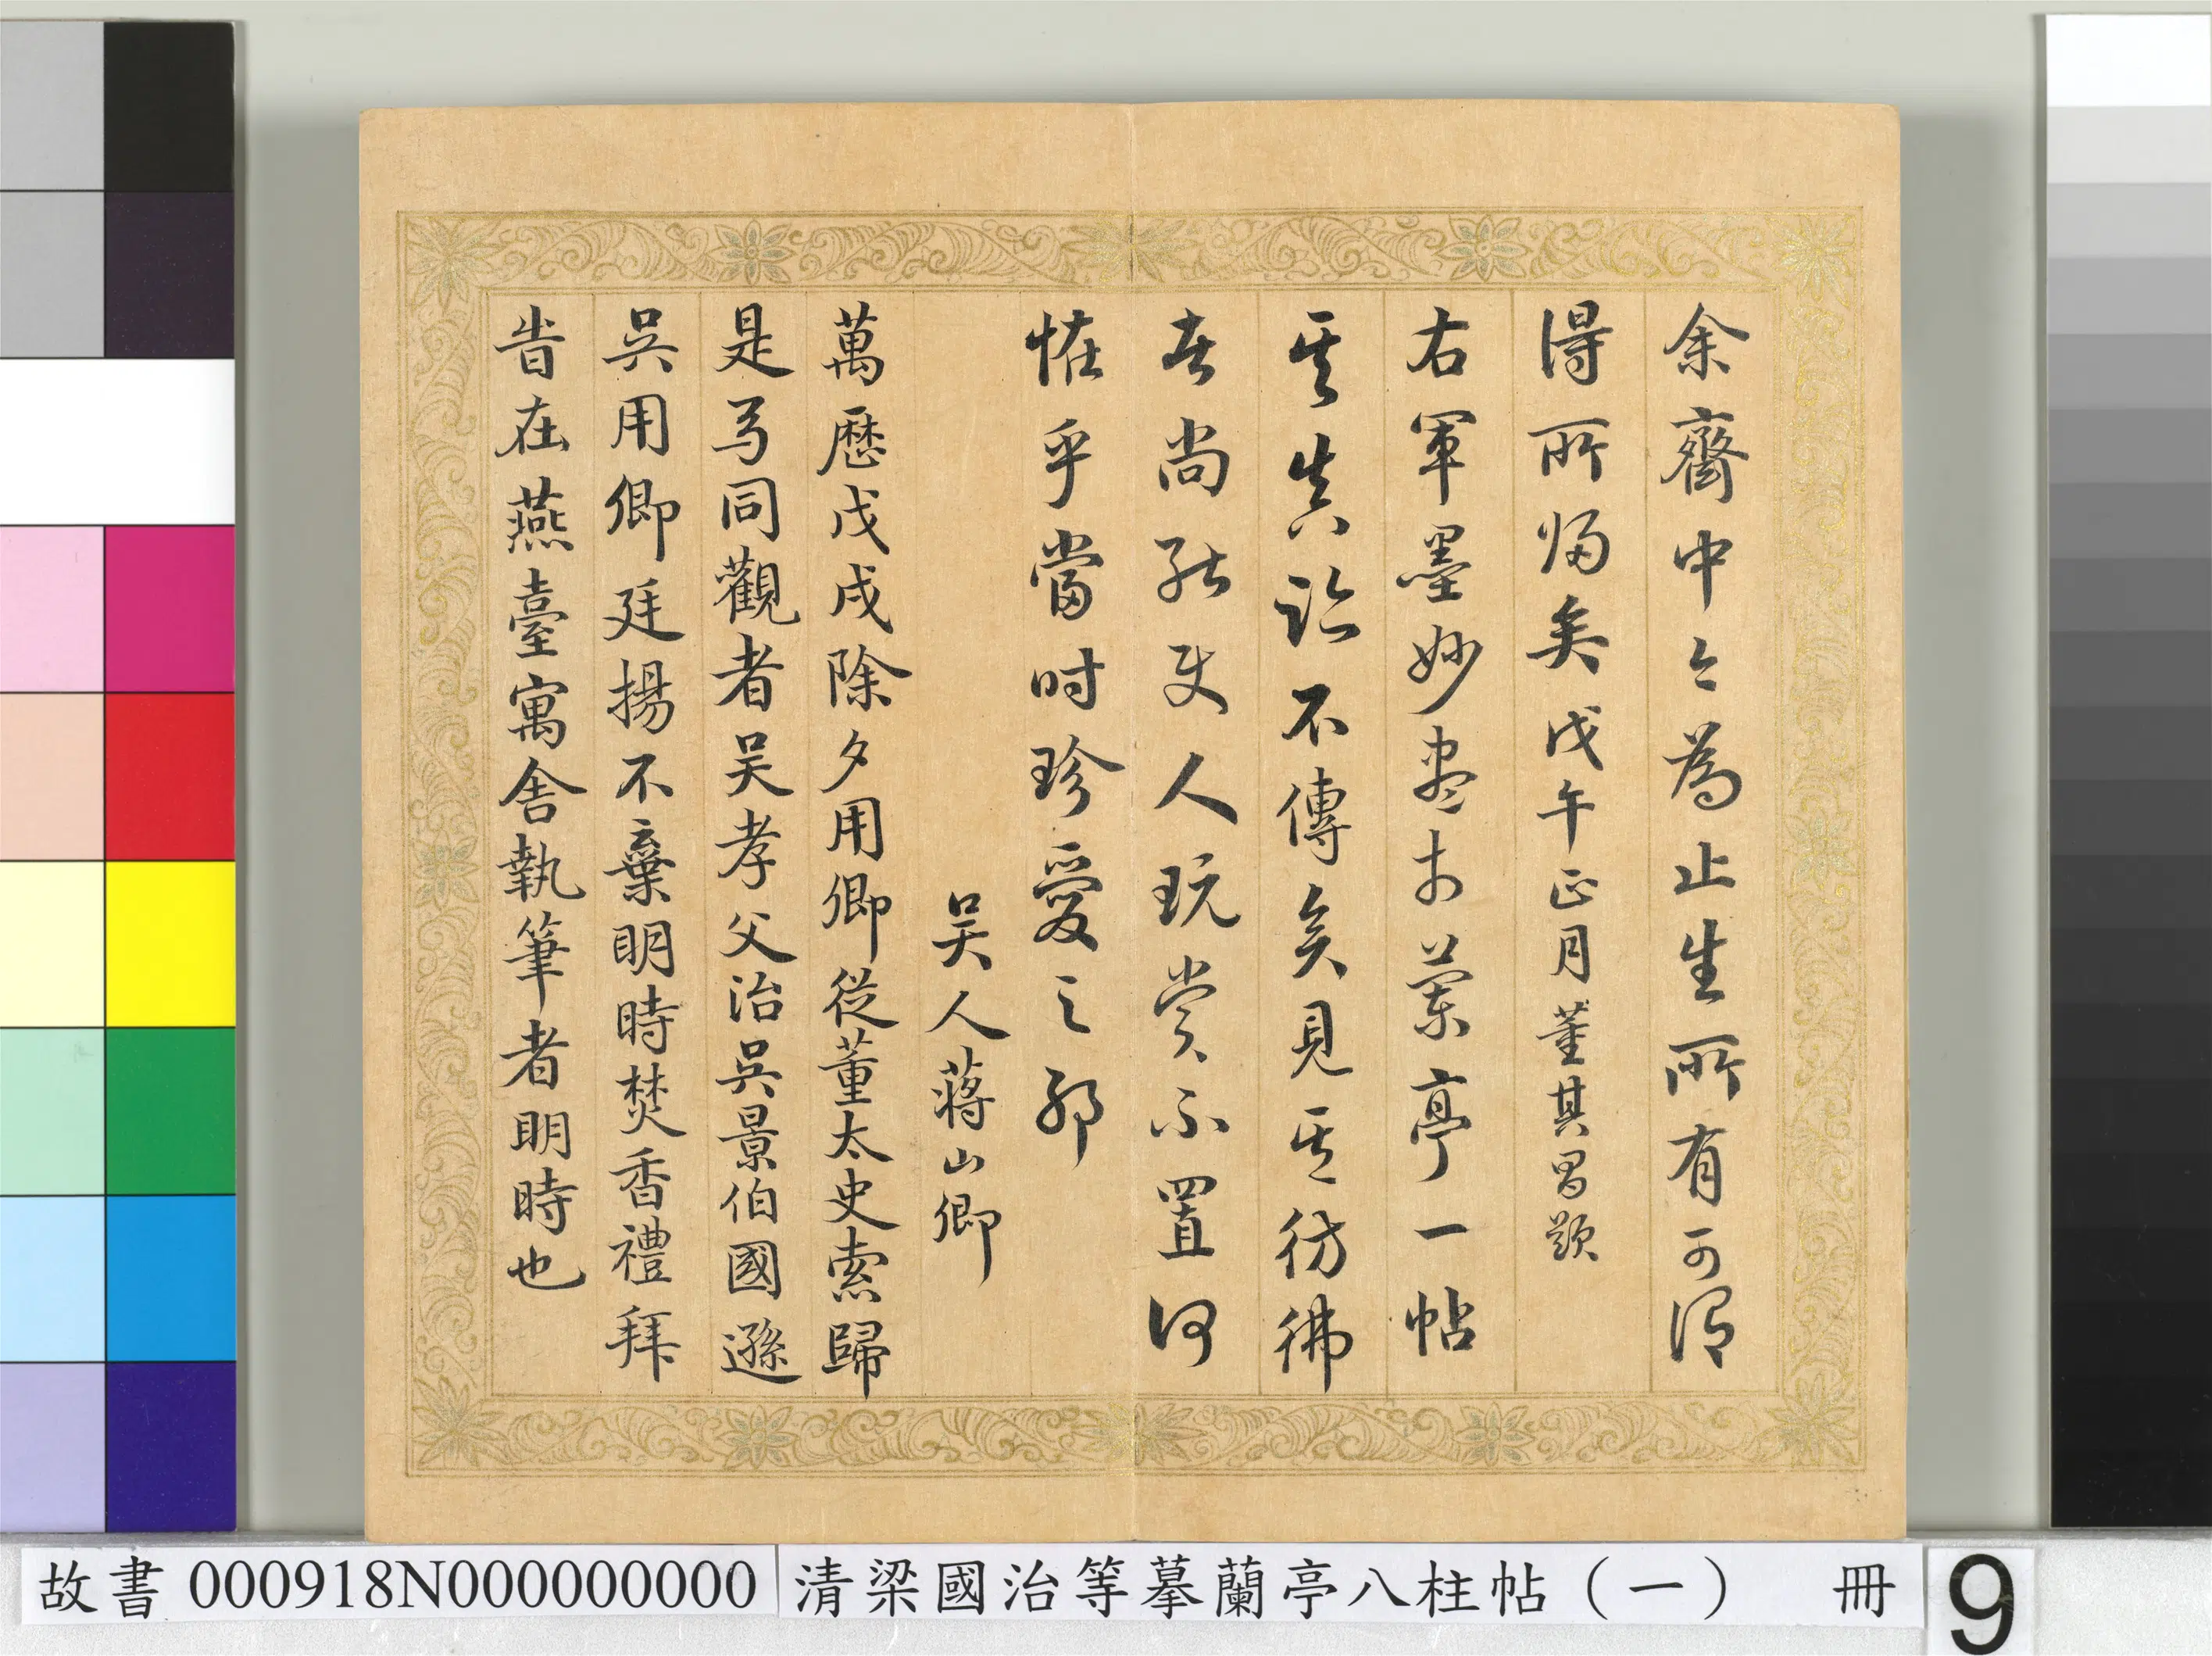 余齋中々為止生所有可謂
得所歸矣戊午正月董其昌題
右軍墨妙盡於蘭亭一帖
其真跡不傳矣見其彷彿
者尚能使人玩賞不置何
恠乎當時珍愛之耶
吳人蔣山卿
萬歷戊戌除夕用卿從董太史索歸
是日同觀者吴孝父治吳景伯國遜
吳用卿廷揚不棄明時焚香禮拜
旹在燕臺寓舍執筆者明時也
故書000918N000000000 清梁國治等摹蘭亭八柱帖(一) 冊 9